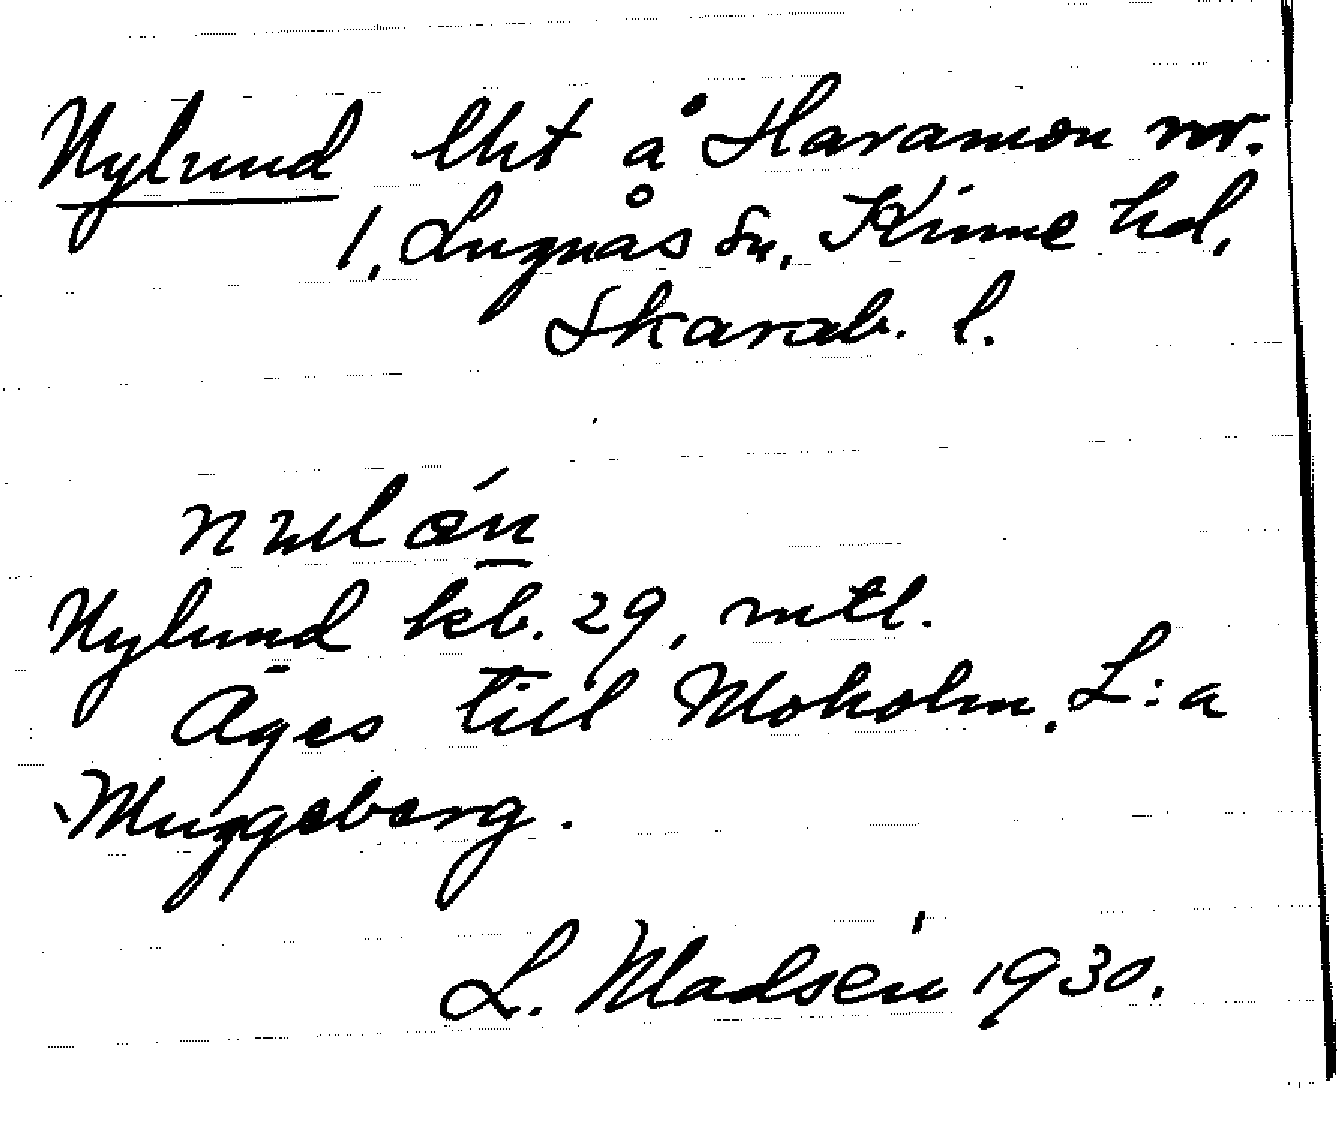 Nylund lht å Haramon nr.
1, Lugnås sn, Kinne hd,
Skarab. l.
Nylund kb. 29, mtl.
Äges till Moholm, L:a
Muggeberg.
L. Madsén 1930.